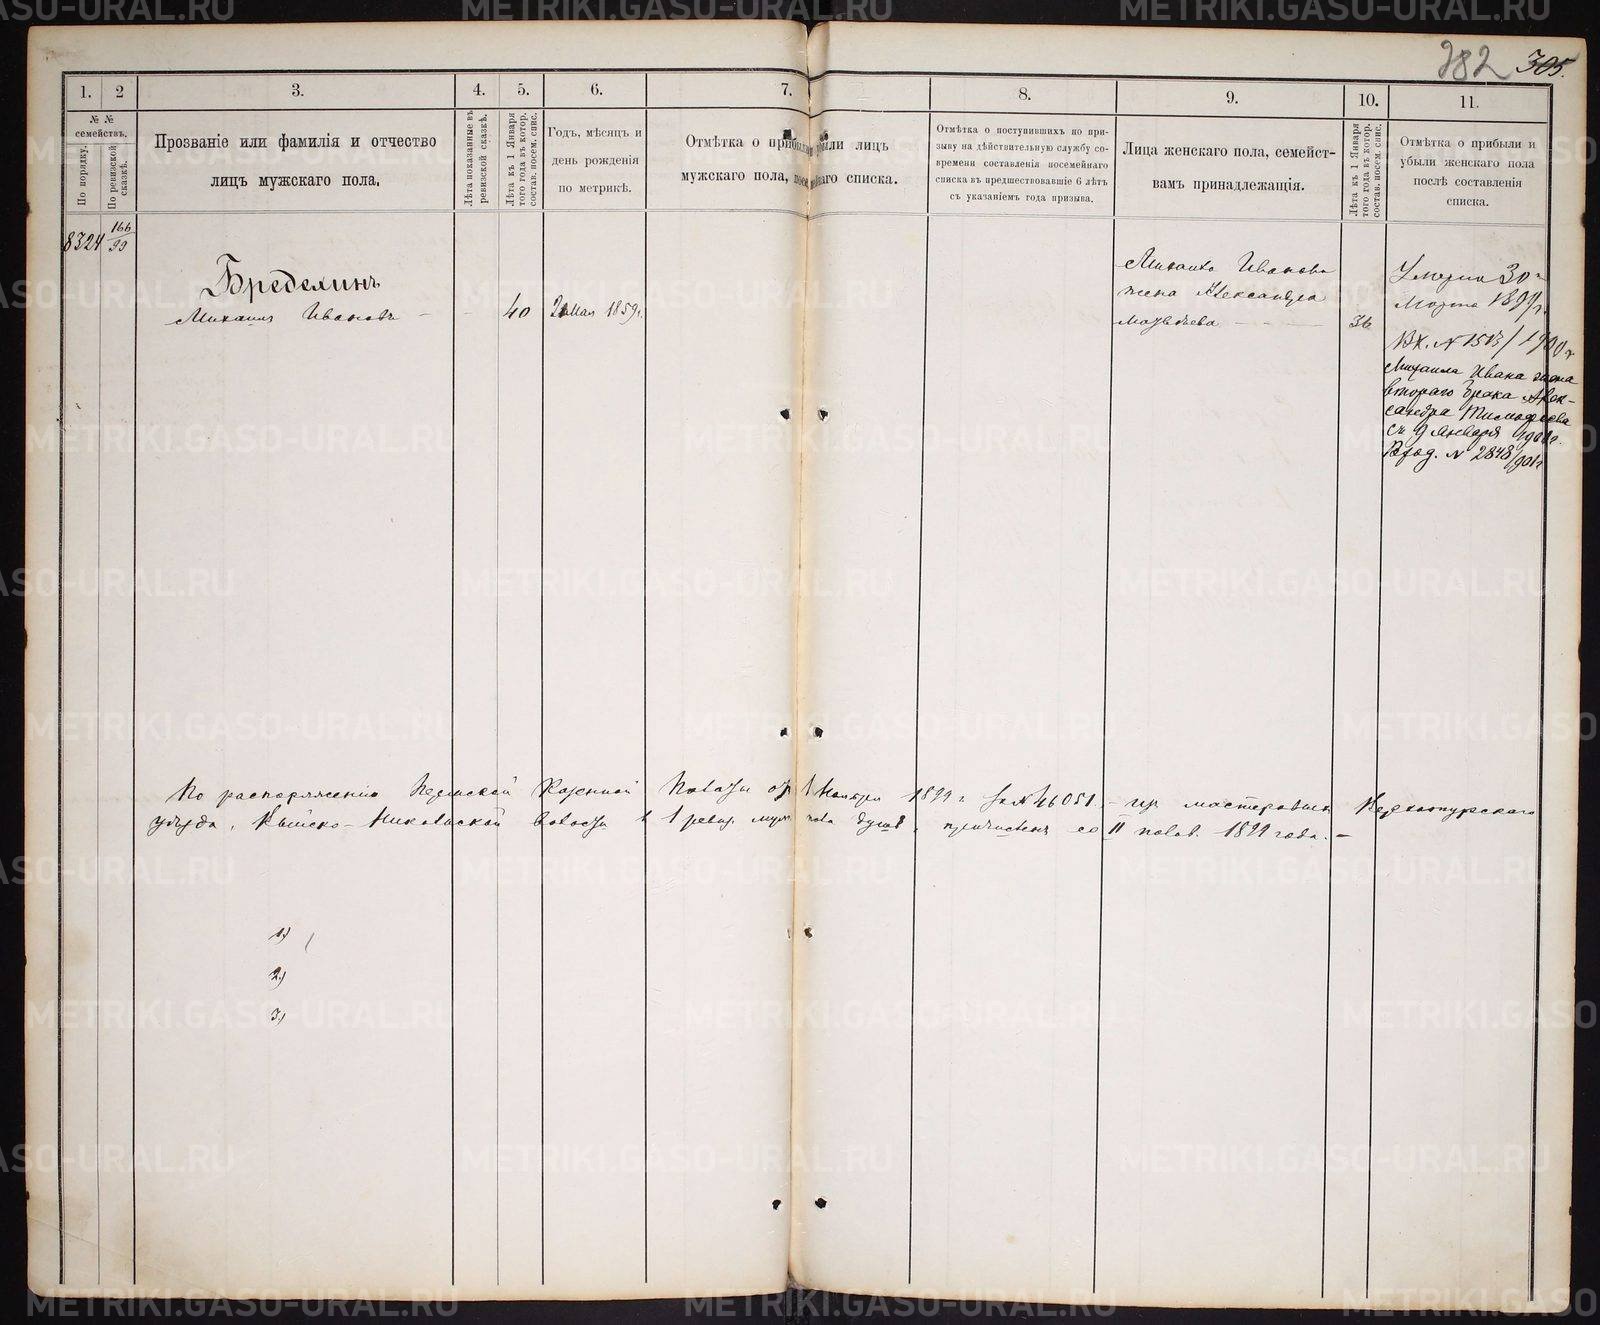 282 305.
1. 2 3. 4. 5. 6. 7. 8. 9. 10. 11.
№ №
семействъ.
По порядку.
По ревизской сказкѣ.
Прозваніе или фамилія и отчество
лицъ мужскаго пола.
Лѣта показанные въ
ревизской сказкѣ.
Лѣта къ 1 Января
того года въ котор.
состав. посем. спис.
Годъ, мѣсяцъ и
день рожденія
по метрикѣ.
Отмѣтка о прибыли лицъ
мужскаго пола, списка.
Отмѣтка о поступившихъ по при-
зыву на дѣйствительную службу со-
времени составленія посемейнаго
списка въ предшествовавшіе 6 лѣтъ
съ указаніемъ года призыва.
Лица женскаго пола, семейст-
вамъ принадлежащія.
Лѣта къ 1 Января
того года въ котор.
состав. посем. спис.
Отмѣтка о прибыли и
убыли женскаго пола
послѣ составленія
списка.
8324 166/99
Бределинъ
Михаилъ Ивановъ - - 40 1859г.
Михаила Иванова
жена Александра
Матвѣева - - - 36
Умерла 30
Марта 1899г.
Вх. № 1513/1900г
Михаила Ивана жена
втораго брака Алек-
сандра Тимофеева
съ 9 Января
№ 2848/901г
По распоряженію Пермской Казенной Палаты 1 Ноября 1899 г за № 46051 - изъ мастеровыхъ Верхотурскаго
уѣзда, Николаевской волости 1 ревиз. муж пола душѣ, причисленъ со II полов. 1899 года. -
1)
2)
3)
METRIKI.GASO-URAL.RU